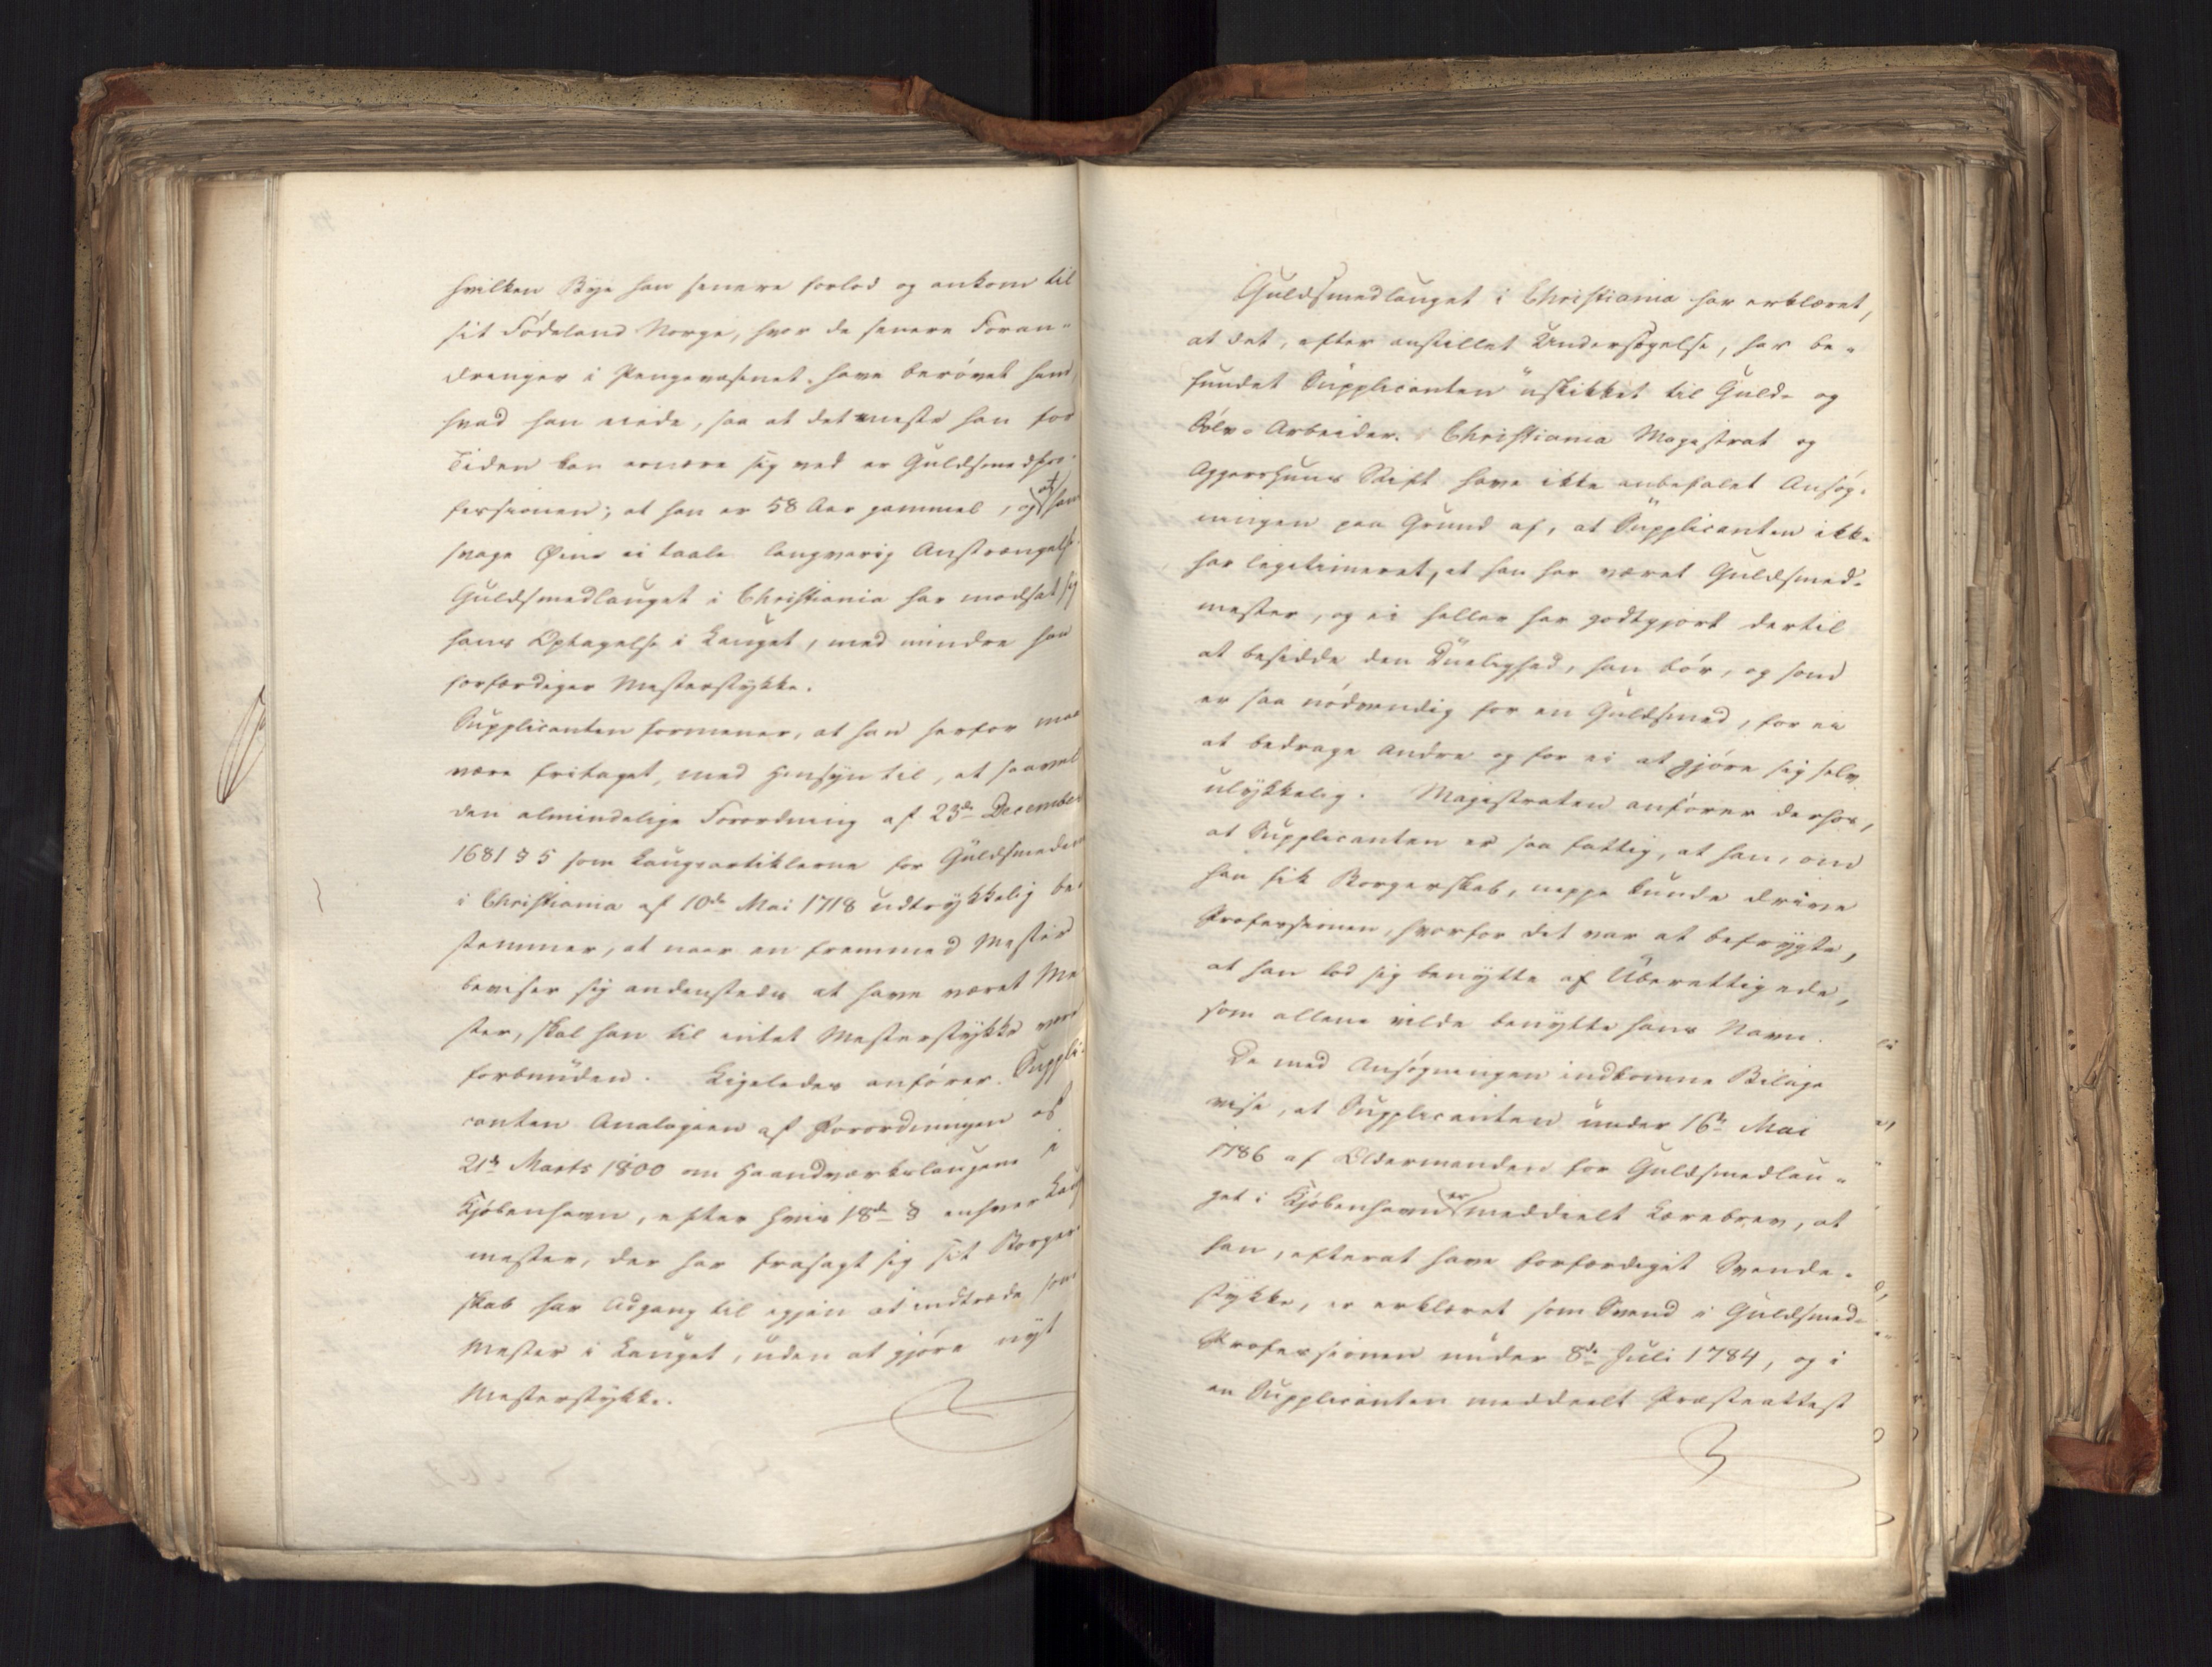 hvilken Bye han senere forlod og ankom til
sit Fødeland Norge, hvor de senere Foran-
dringer i Pengevæsenet have berøvet ham,
hvad han eiede, saa at det meste han for
Tiden kan ernære sig ved er Guldsmedpro-
fessionen; at han er 58 Aar gammel, og at hans
svage Øine ei taale langvarig Anstrængelse.
Guldsmedlauget i Christiania har modsat sig
hans Optagelse i Lauget, med mindre han
forfærdiger Mesterstykke.
Supplicanten formener, at han herfor maa
være fritaget, med Hensyn til, at saavel
den almindelige Forordning af 23de December
1681 § 5 som Laugsartiklerne for Guldsmedene
i Christiania af 10de Mai 1718 udtrykkelig be-
stemmer, at naar en fremmed Mester
beviser sig andensteds at have været Me
ster, skal han til intet Mesterstykke være
forbunden. Ligeledes anfører Suppli-
canten Analogien af Forordningen af
21de Marts 1800 om Haandværkslaugene i
Kjøbenhavn, efter hvis 18de § enhver Laug
mester, der har frasagt sig sit Borger
skab har Adgang til igjen at indtræde som
Mester i Lauget, uden at gjøre nyt
Mesterstykke.
Guldsmedlauget i Christiania har erklæret,
at det, efter anstillet Undersøgelse, har be-
fundet Supplicanten uskikket til Guld- og
Sølv-Arbeider. Christiania Magistrat og
Aggershuus Stift have ikke anbefalet Ansøg-
ningen paa Grund af, at Supplicanten ikke
har legitimeret, at han har været Guldsmed-
mester, og ei heller har godtgjort dertil
at besidde den Duelighed, han bør, og som
er saa nødvendig for en Guldsmed, for ei
at bedrage Andre og for ei at gjøre sig selv
ulykkelig. Magistraten anfører derhos,
at Supplicanten er saa fattig, at han, om
han fik Borgerskab, neppe kunde drive
Professionen, hvorfor det var at befrygte,
at han lod sig benytte af Uberettigede,
som allene vilde benytte hans Navn.
De med Ansøgningen indkomne Bilage
vise, at Supplicanten under 16de Mai
1786 af Oldermanden for Guldsmedlau-
get i Kjøbenhavn er meddeelt Lærebrev, at
han, efterat have forfærdiget Svende-
stykke, er erklæret som Svend i Guldsmed-
Professionen under 8de Juli 1784, og i
en Supplicanten meddeelt Præsteattest